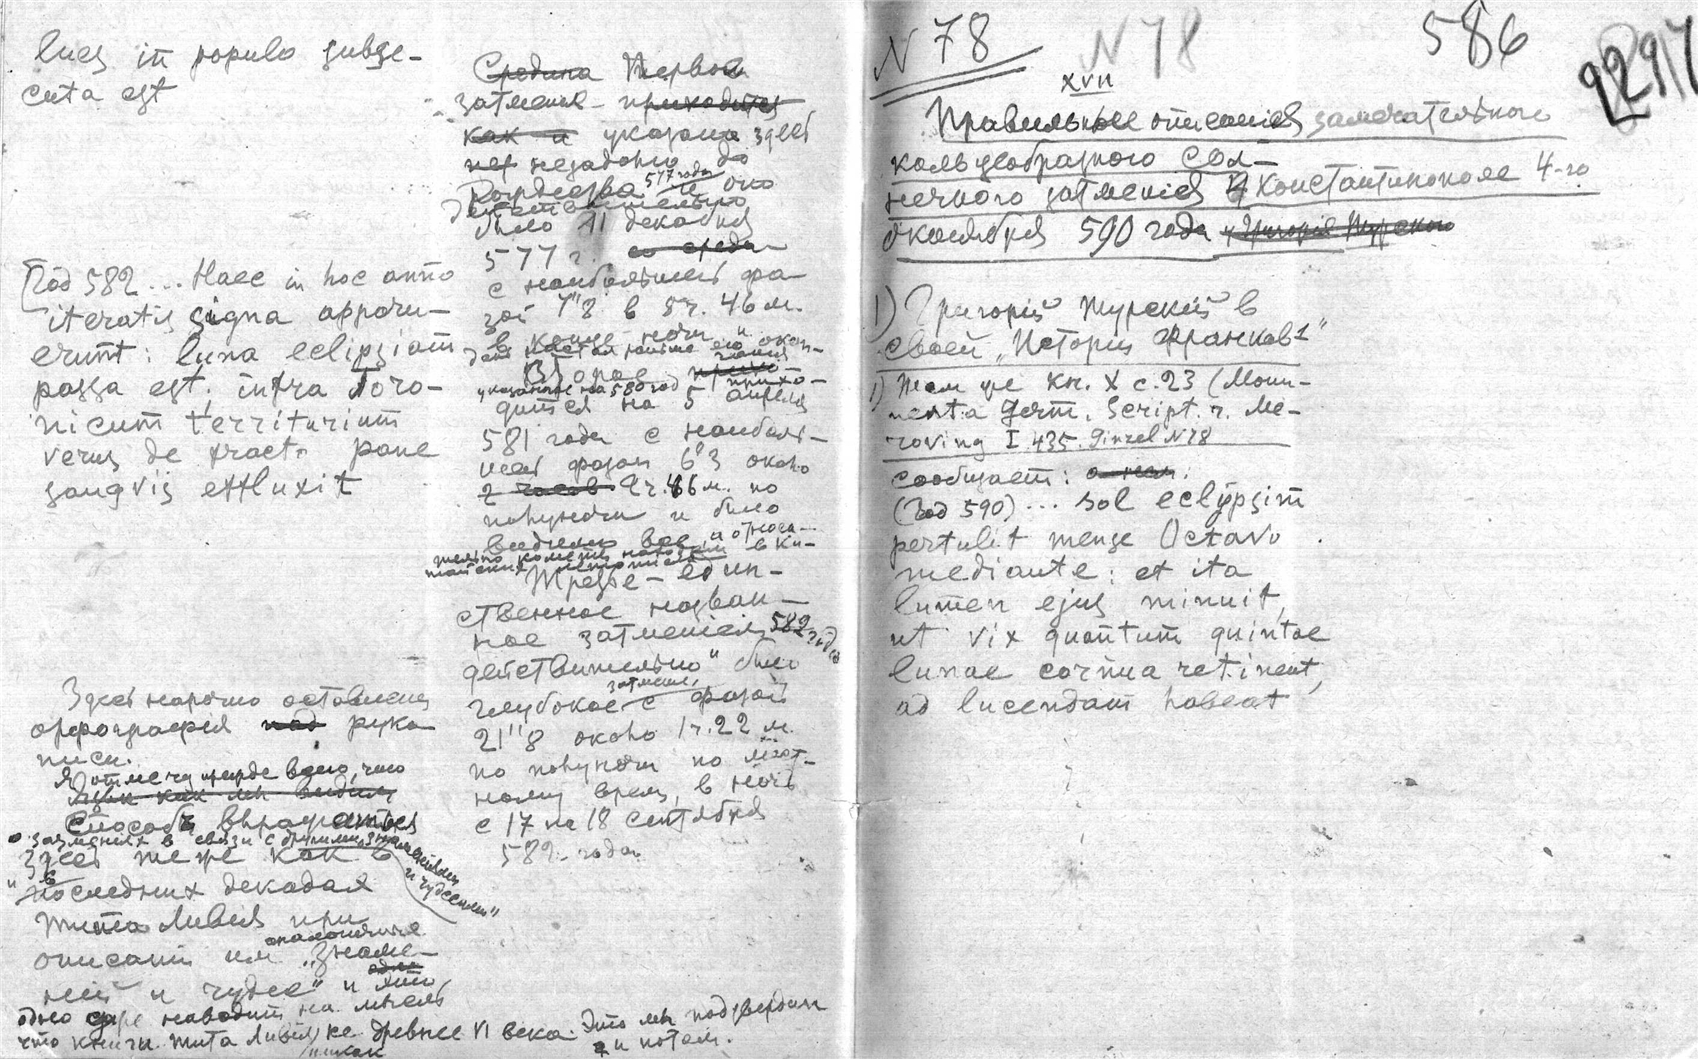 lues in populo subse-
cuta est
[Год 582 ... Haec in hoc anno
iteratis signa apparu-
erunt: luna eclipsiam
passa est; infra Toro-
nicum territurium
verus de fracto pane
sangvis effluxit
Здесь нарочно оставлена
орфография над руко-
писи.
Я отмечу прежде всего, что
Язык как мы видим
Способ выражаться
о затмениях в связи с другими знамениями
и чудесами"
здесь тот же как в
последних декадах
Тита Ливия при
описании им аналогичных
"Знаме-
ний и чудес" и это
одно уже наводит на мысль
что книги Тита Ливия никак не древнее VI века. Это мы подтвердим
и потом.
Средина Первое
затмение приходится
как и указано здесь
незадолго до
Рождества 577 года и оно
действительно
было 11 декабря
577 г. со среда
с наибольшей фа-
зой 7"8 в 5 ч. 46 м.
в конце ночи и окон-
Второе
указанное на 580 год прихо-
дится на 5 апреля
581 года с наиболь-
шей фазой 6"3 около
2 часов 2 ч. 46 м. по
полуночи и было
видимо все
Третье – един-
ственное назван-
ное затмением 582 года
действительно было
глубокое затмение с фазой
21"8 около 1 ч. 22 м.
по полуночи по мест-
ному врем, в ночь
с 17 на 18 сентября
582 года
N 78 N 78 586 2297
XVII
Правильное описание замечательного
кольцеобразного Сол-
нечного затмения в Константинополе 4-го
октября 590 года у Григория Турского
1) Григорий Турский в
своей „История Франков¹"
1) Там же кн. X с. 23 (Monu-
menta Germ. Script. r. Me-
roving I 435. Ginzel N 78
сообщает:
(Год 590) ... sol eclypsim
pertulit mense Octavo
mediante: et ita
lumen ejus minuit,
ut vix quantum quintae
lunae cornua retinent,
ad lucendam habeat